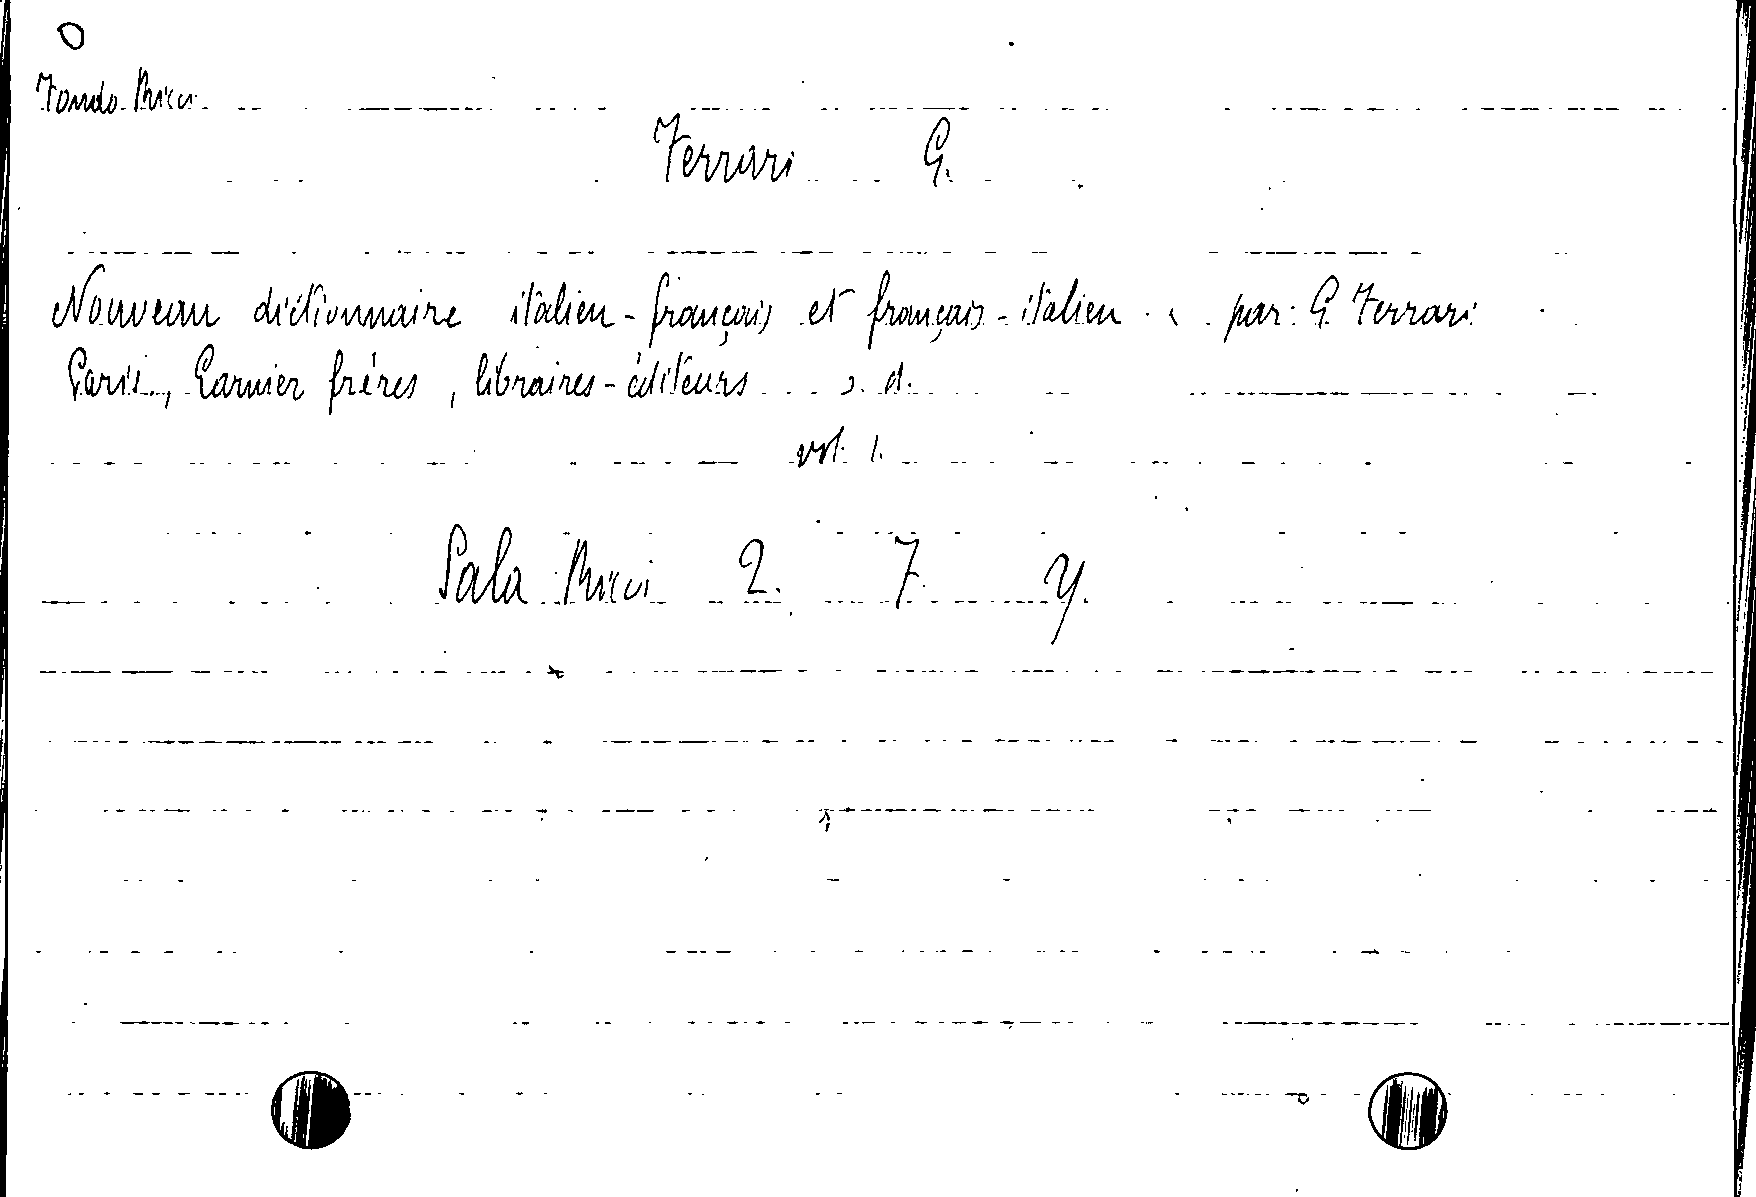 Fondo Ricci
Ferrari G.
Nouveau dictionnaire italien-français et français-italien . par G. Ferrari
Paris, Garnier frères, libraires-éditeurs s. d.
vol. 1.
Sala Ricci 2. 7 y.